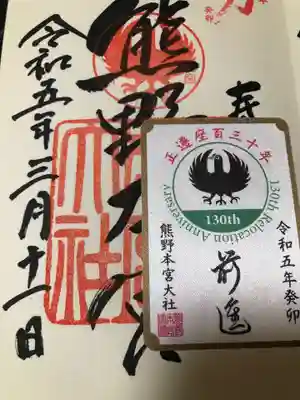 奉
熊野大
令和五年三月十一日
正遷座百三十年
130th Relocation Anniversary
130th
令和五年癸卯
前進
熊野本宮大社